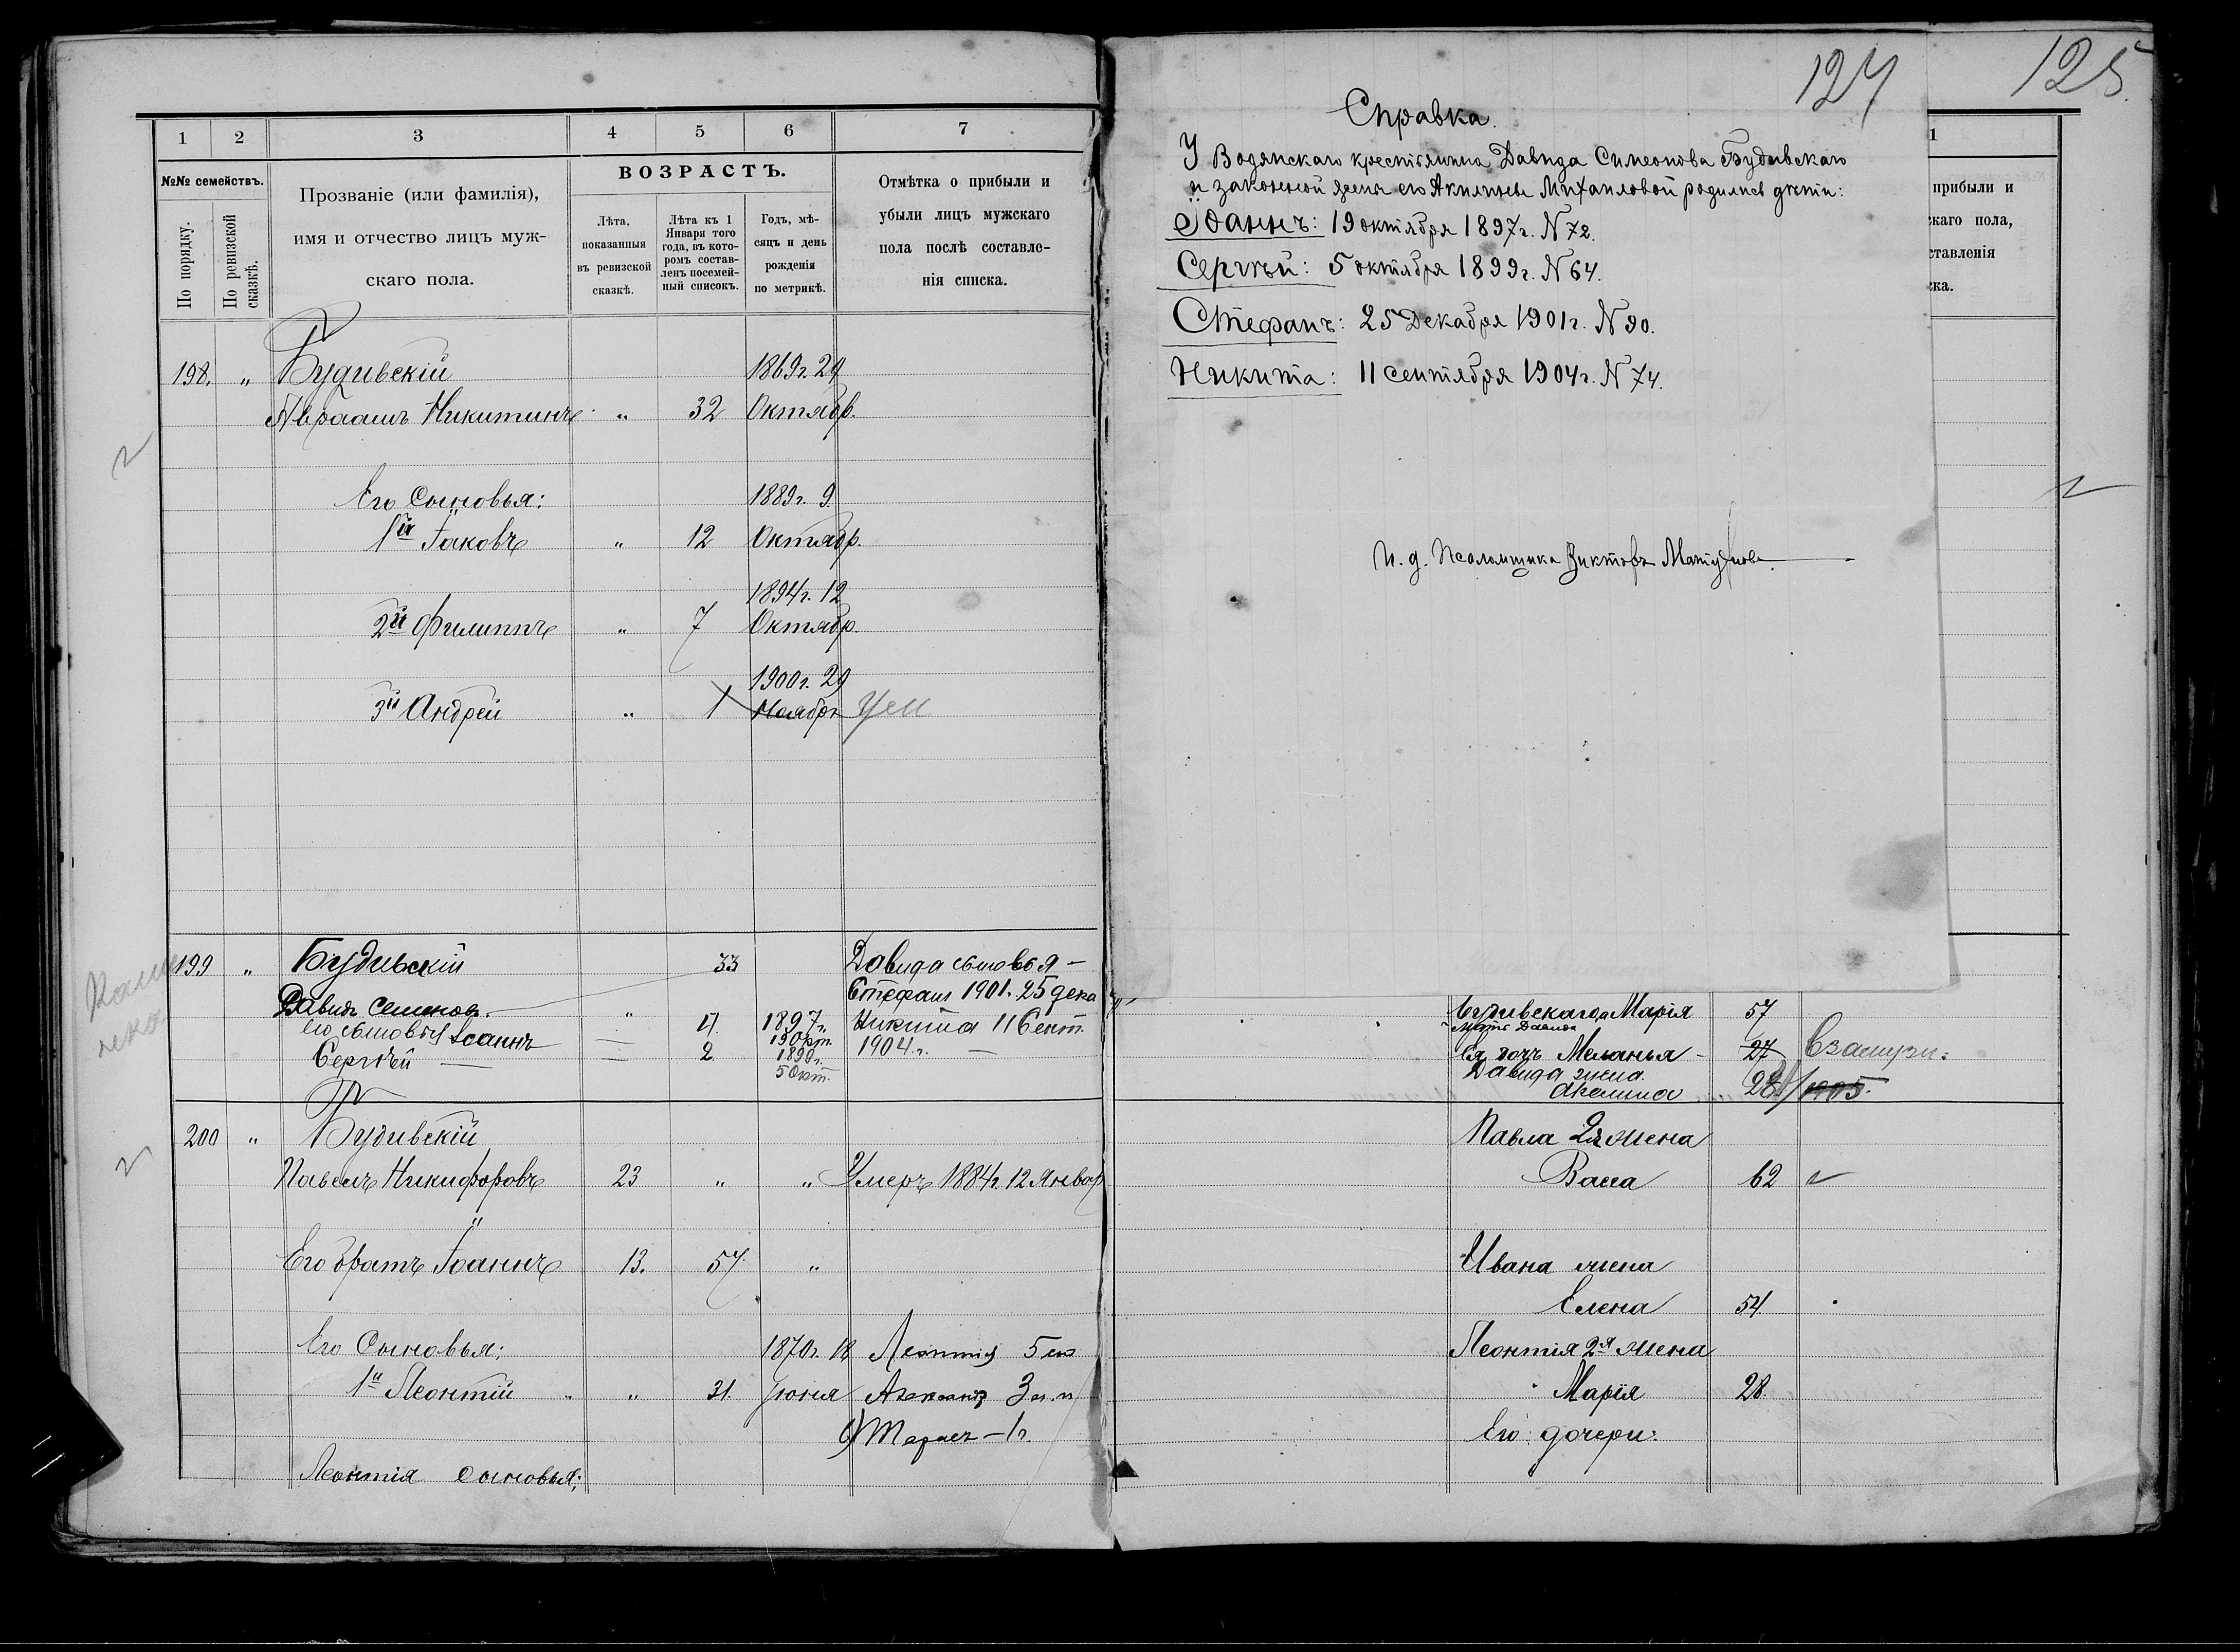 1 2 3 4 5 6 7
№№ семействъ.
По порядку.
По ревизской сказкѣ.
Прозваніе (или фамилія),
имя и отчество лицъ муж-
скаго пола.
ВОЗРАСТЪ.
Лѣта,
показанныя
въ ревизской
сказкѣ.
Лѣта къ 1
Января того
года, въ кото-
ромъ состав-
ленъ посемей-
ный списокъ.
Годъ, мѣ-
сяцъ и день
рожденія
по метрикѣ.
Отмѣтка о прибыли и
убыли лицъ мужскаго
пола послѣ составле-
нія списка.
198. „ Будивскій 1869г. 29
Авраамъ Никитинъ „ 32 Октябр.
Его Сыновья: 1889г. 9
1й Іаковъ „ 12 Октябр.
1894г. 12
2й Филиппъ „ 7 Октябр.
1900г. 29
3й Андрей „ 1 Ноябр Ум
199 „ Будивскій 33 Давида сыновья –
Давидъ Семеновъ „ Стефанъ 1901г. 25 дека
его сыновья Іоаннъ 4 1897г. 19 окт. Никита 11 Сент.
Сергѣй 2 1899г. 5 Окт. 1904г. –
200 „ Будивскій
Павелъ Никифоровъ 23 „ „ Умеръ 1884г. 12 Январ
Его братъ Іоаннъ 13. 57 „
Его Сыновья: 1870г. 18 Леонтія 5
1й Леонтій „ 31. Іюня 3
Тарасъ – 1г.
Леонтія сыновья:
124
125.
Справка.
У Водянскаго крестьянина Давида Симеонова Будивскаго
и законной жены его Акилины Михаиловой родились дѣти:
Іоаннъ: 19 октября 1897г. N 72.
Сергѣй: 5 октября 1899г. N 64.
Стефанъ: 25 Декабря 1901г. N 90.
Никита: 11 сентября 1904г. N 74.
И. д. Псаломщика Викторъ
1
прибыли и
скаго пола,
ставленія
ска.
Будивскаго Марія 57
Мать Давида
Ея дочь Меланья – 27 Взамуж:
Давида жена
Акилина 28 1905.
Павла 2я жена
Васса 62
Ивана жена
Елена 54
Леонтія 2я жена
Марія 28.
Его дочери: